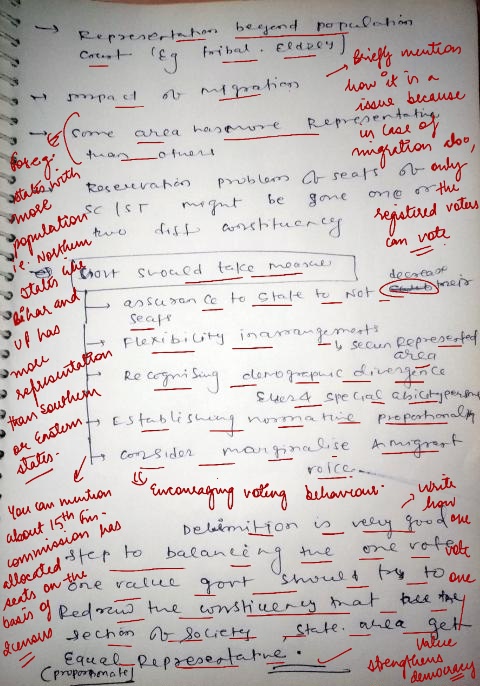 → Representation beyond population
count (Eg tribal. Elderly)
→ Impact of migration
→ Some area has more Representative
than others
Reservation problem of seats of
SC/ST might be gone one or
two diff constituency
Govt should take measure
→ assurance to state to not decrease their
seats
→ Flexibility in arrangements
↳ secure Represented
area
→ Recognising demographic divergence
Elders & special ability person
→ Establishing normative proportionality
→ consider marginalise & migrant
voice
Delimition is very good
step to balancing the one vote
one value govt should try to
Redraw the constituency that all the
section of society, state area get
Equal Representative.
(proportionate)
→ Briefly mention
how it is a
issue because
in case of
migration also,
only
the
registired voters
can vote.
For eg:
states with
more
population
i.e. Northern
states like
Bihar and
UP has
more
representation
than southern
or Eastern
states.
You can mention
about 15th Fin-
commission has
allocated
seats on the
basis of
Encouraging voting behaviour.
→ write
how
one
vote
one
value
strengthens
democracy